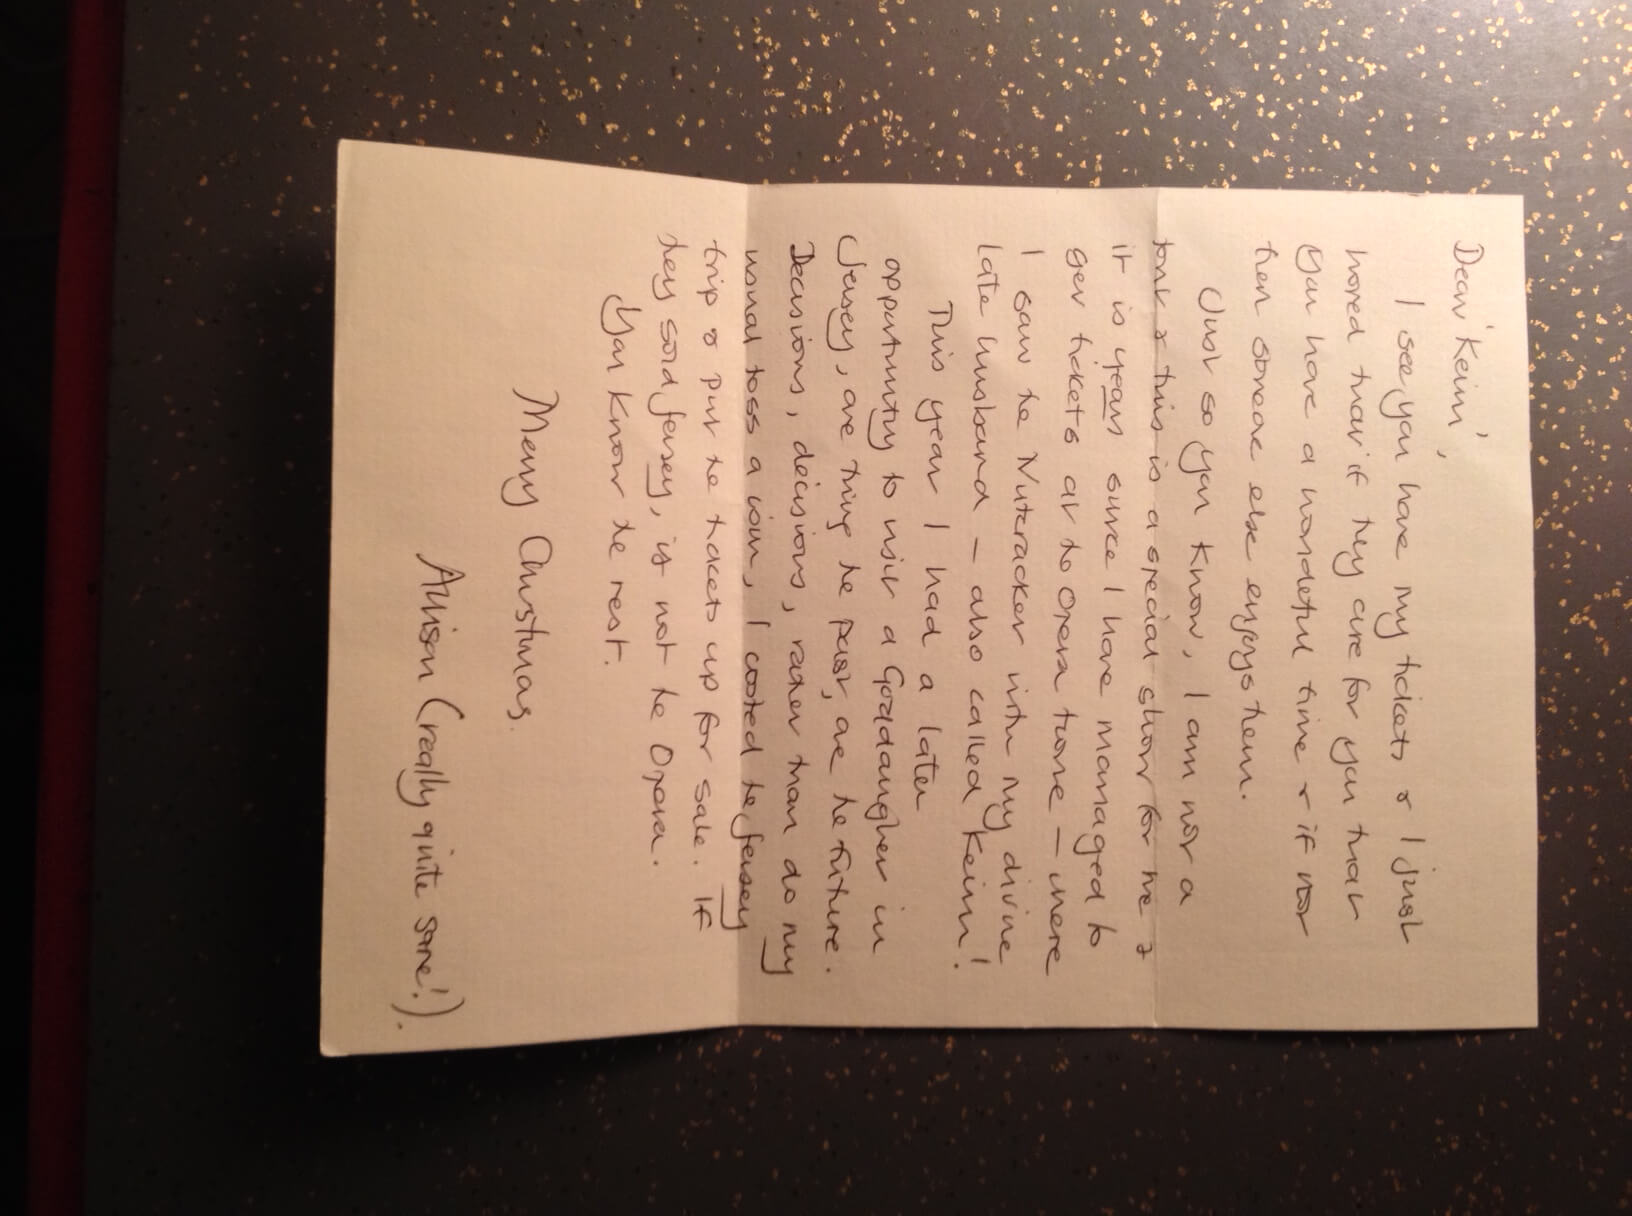 Dear 'Kevin',
I see you have my tickets & I just
hoped that if they are for you that
you have a wonderful time & if not
then someone else enjoys them.
Just so you know, I am not a
tout & this is a special show for me &
it is years since I have managed to
get tickets at the Opera House – where
I saw the Nutcracker with my divine
late husband – also called Kevin!
This year I had a later
opportunity to visit a Goddaughter in
Jersey, one thing the past, one the future.
Decisions, decisions, rather than do my
usual toss a coin, I booked the Jersey
trip & put the tickets up for sale. If
they sold Jersey, if not the Opera.
You know the rest.
Merry Christmas.
Allison (really quite sane!).